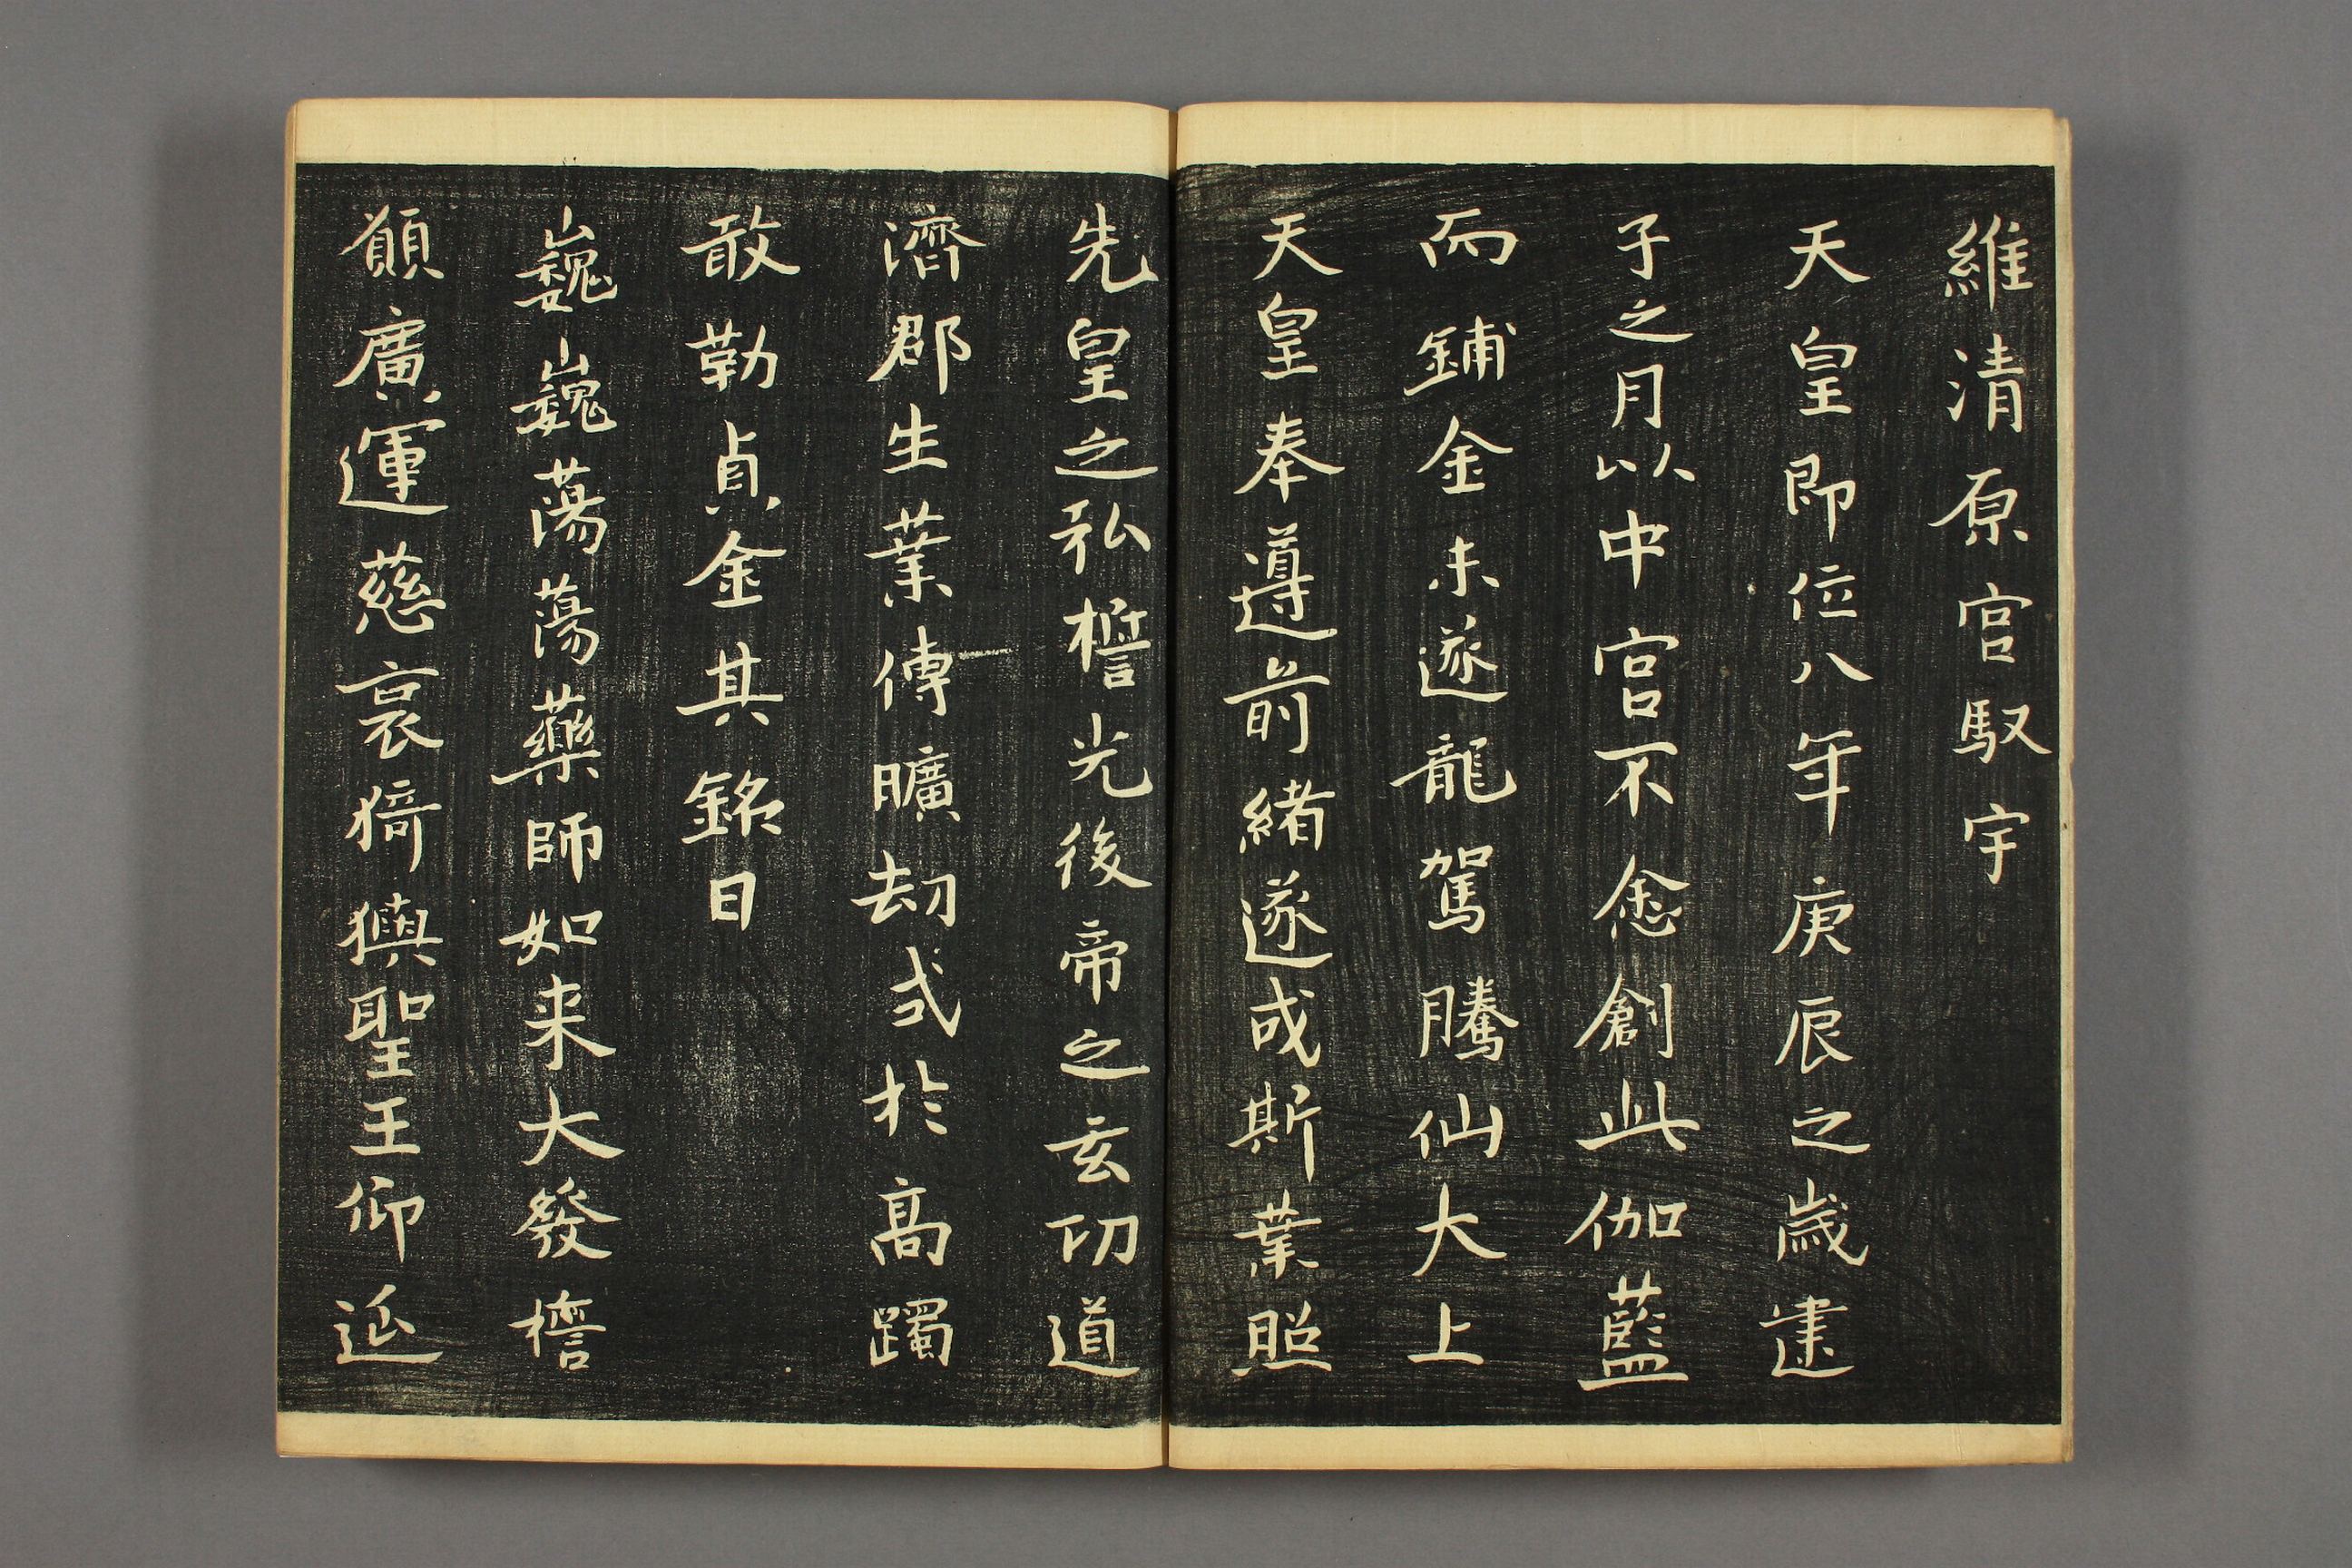 維清原宮馭宇
天皇即位八年庚辰之歳建
子之月以中宮不悆創此伽藍
而鋪金未遂龍駕騰仙大上
天皇奉遵前緒遂成斯業照
先皇之弘誓光後帝之玄功道
濟郡生業傳曠劫式於高躅
敢勒貞金其銘曰
巍巍蕩蕩藥師如来大發誓
願廣運慈哀猗㺞聖王仰延